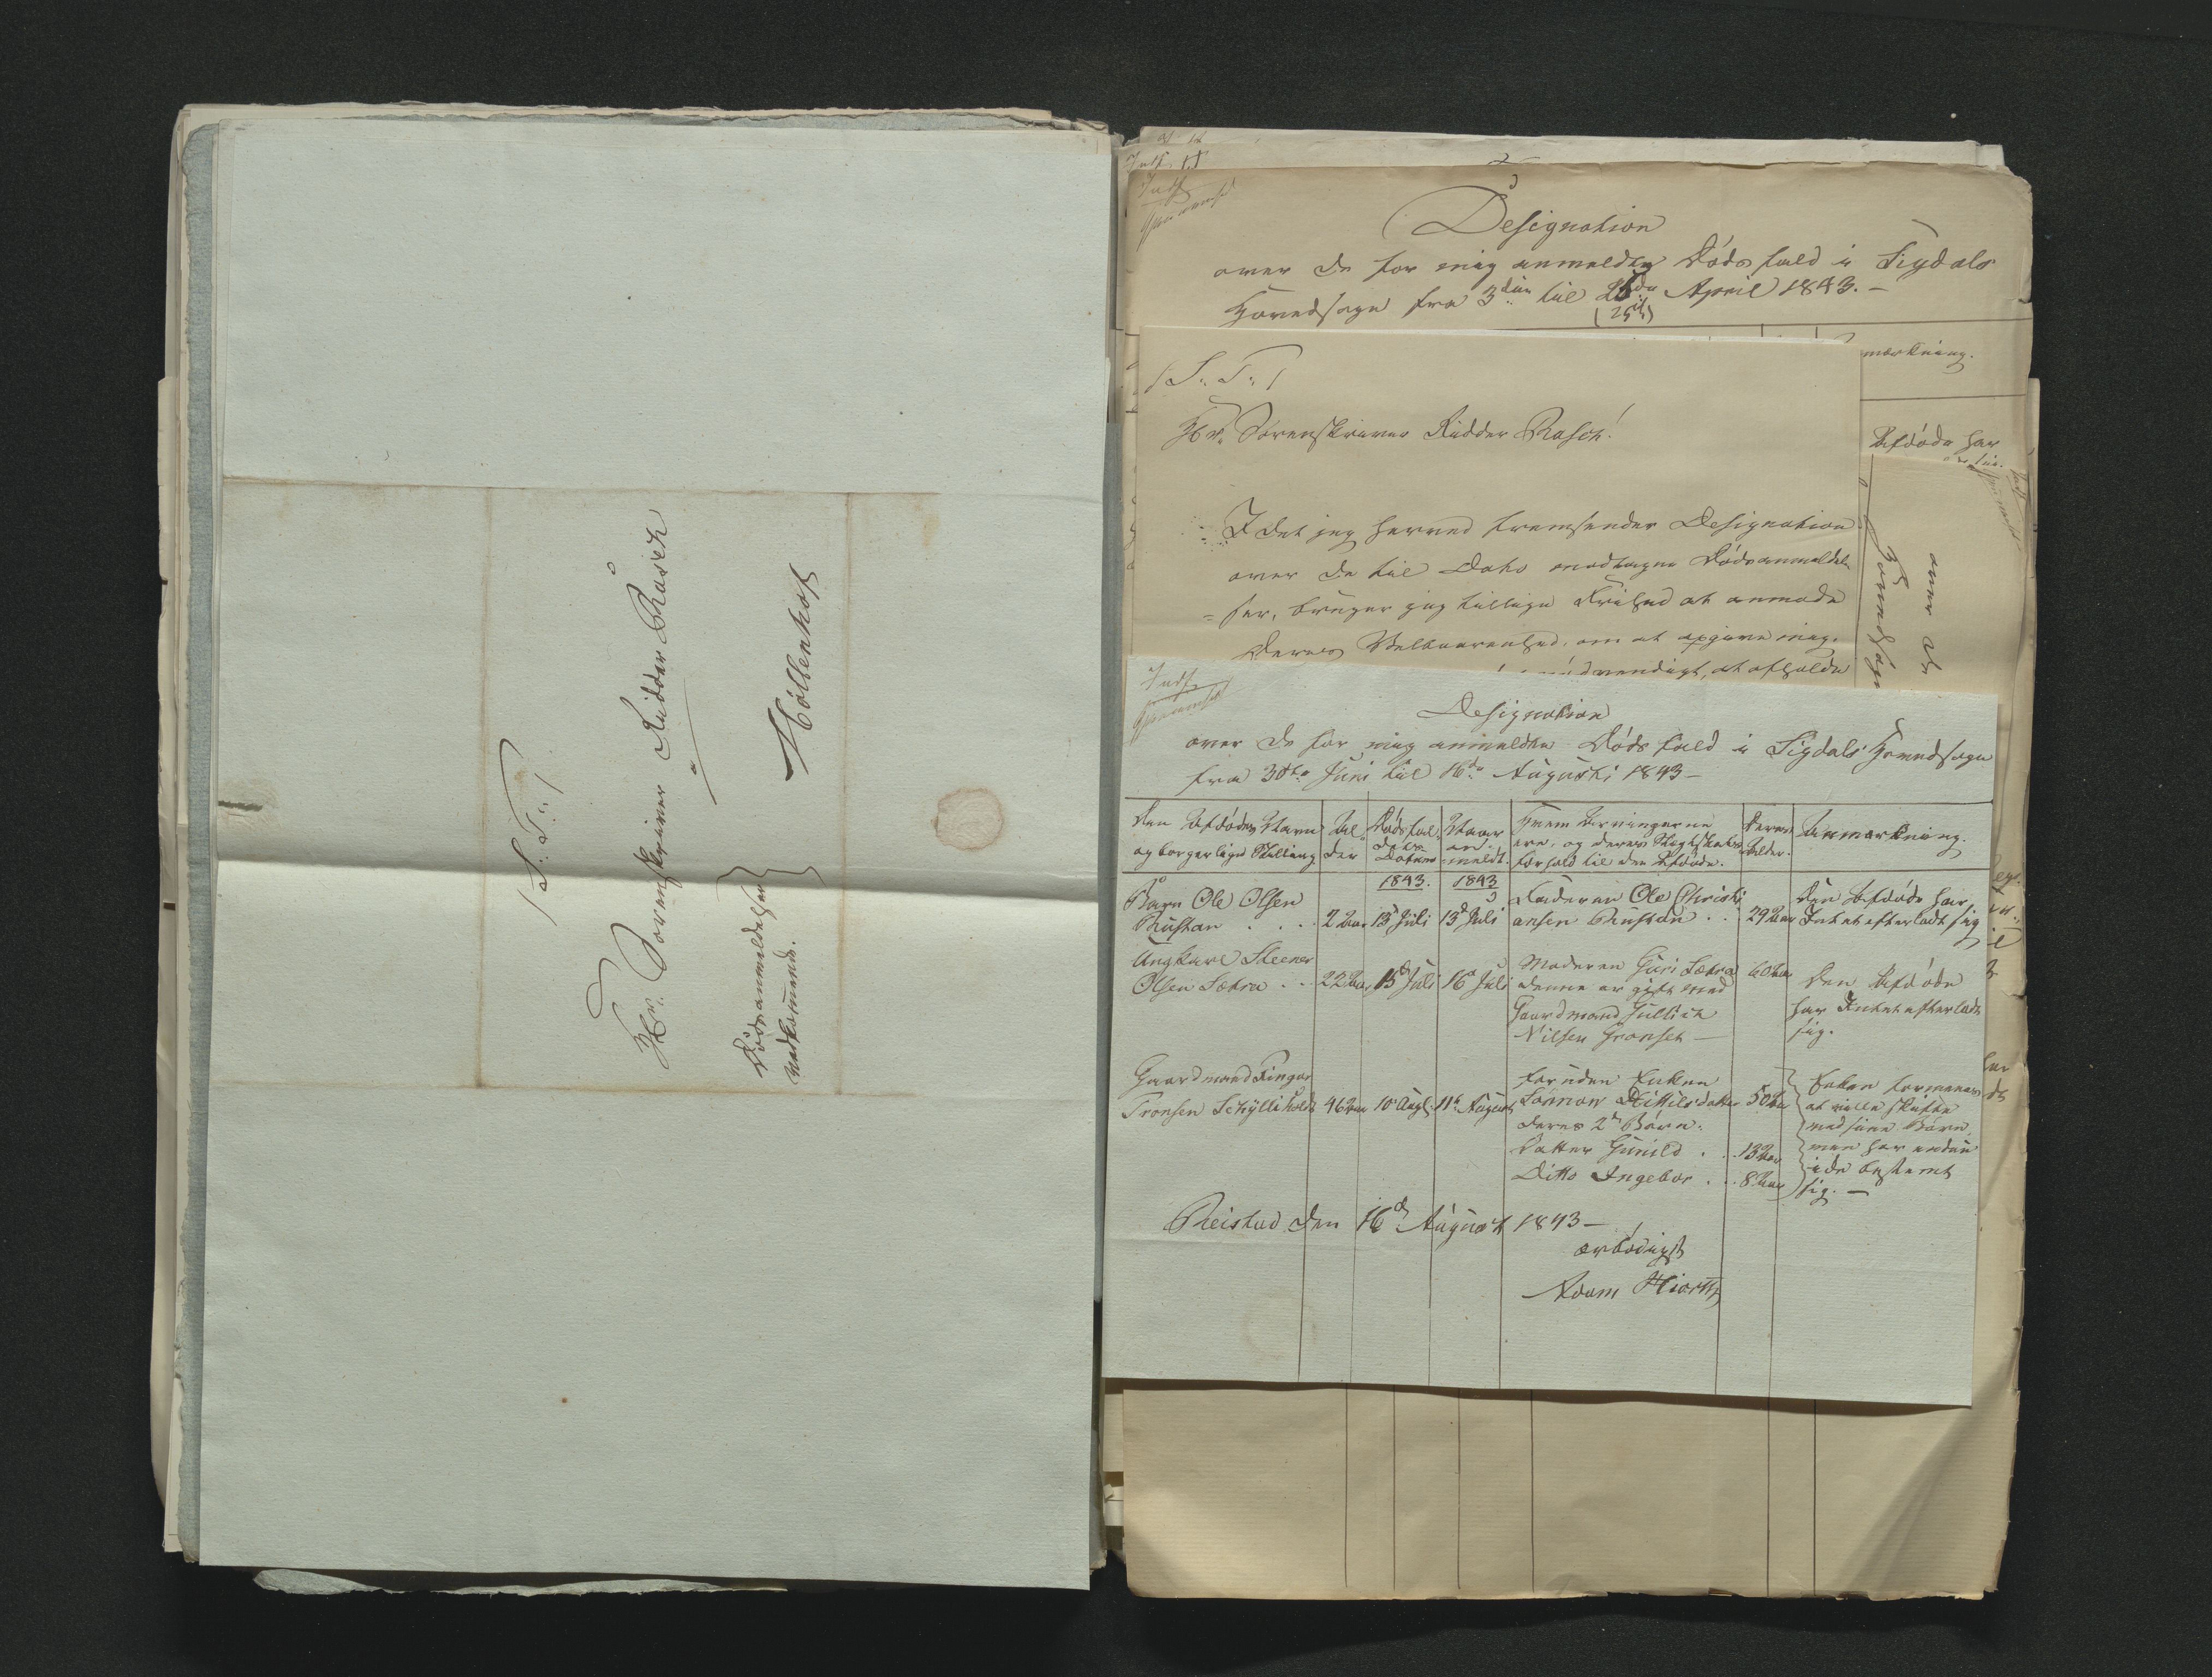 /S: T:/
Hr. Sorenskriver Ridder Rasch
Møllenhof
Dødsanmeldelser
vedkommende.
Designation
over de for mig anmeldte Dødsfald i Sigdals
Hovedsogn fra 3die til April 1843.-
(25de)
mærkning.
Afdøde har
/S: T:/
Hr. Sorenskriver Ridder Rasch!
I det jeg herved fremsender Designation
over de til Dato modtagne Dødsanmeldel-
=ser, bruger jeg tillige Frihed at anmode
Deres Velbaarenhed, om at opgive mig,
nødvendigt, at afholde
over de
Hovedsogn
Indf.
Designation
over de for mig anmeldte Dødsfald i Sigdals Hovedsogn
fra 30te Juni til 16de Augusti 1843-
Den Afdødes Navn
og borgerlige Stilling
Al-
der
Dødsfal-
dets
Datum
Naar
an-
meldt.
Hvem Arvingerne
ere, og deres Slægtskabs
forhold til den Afdøde.
Deres
Alder.
Anmærkning.
1843. 1843
Barn Ole Olsen
Rustan . . . . 2 Aar 13d Juli 13d Juli
Faderen Ole Christi
ansen Rustan . . 29 Aar
Den Afdøde har
Intet efterladt sig
Ungkarl Steener
Olsen Sætra . . 22 Aar 15d Juli 16d Juli
Moderen Guri Sætra 60 Aar
denne er gift med
Gaardmand Gullich
Nilsen Gronset -
Den Afdøde
har Intet efterladt
sig.
Gaardmand Finger
Tronsen 46 Aar 10d Augt. 11te August
foruden Enken
Kittilsdatter 50 Aar
deres 2de Børn:
Datter Gunild . . 13 Aar
Ditto Ingebor . . . 8 Aar
Enken formener
at ville skifte
med sine Børn,
men har endnu
ikke bestemt
sig. -
Reistad den 16d August 1843-
ærbødigst
Adam Hiorth